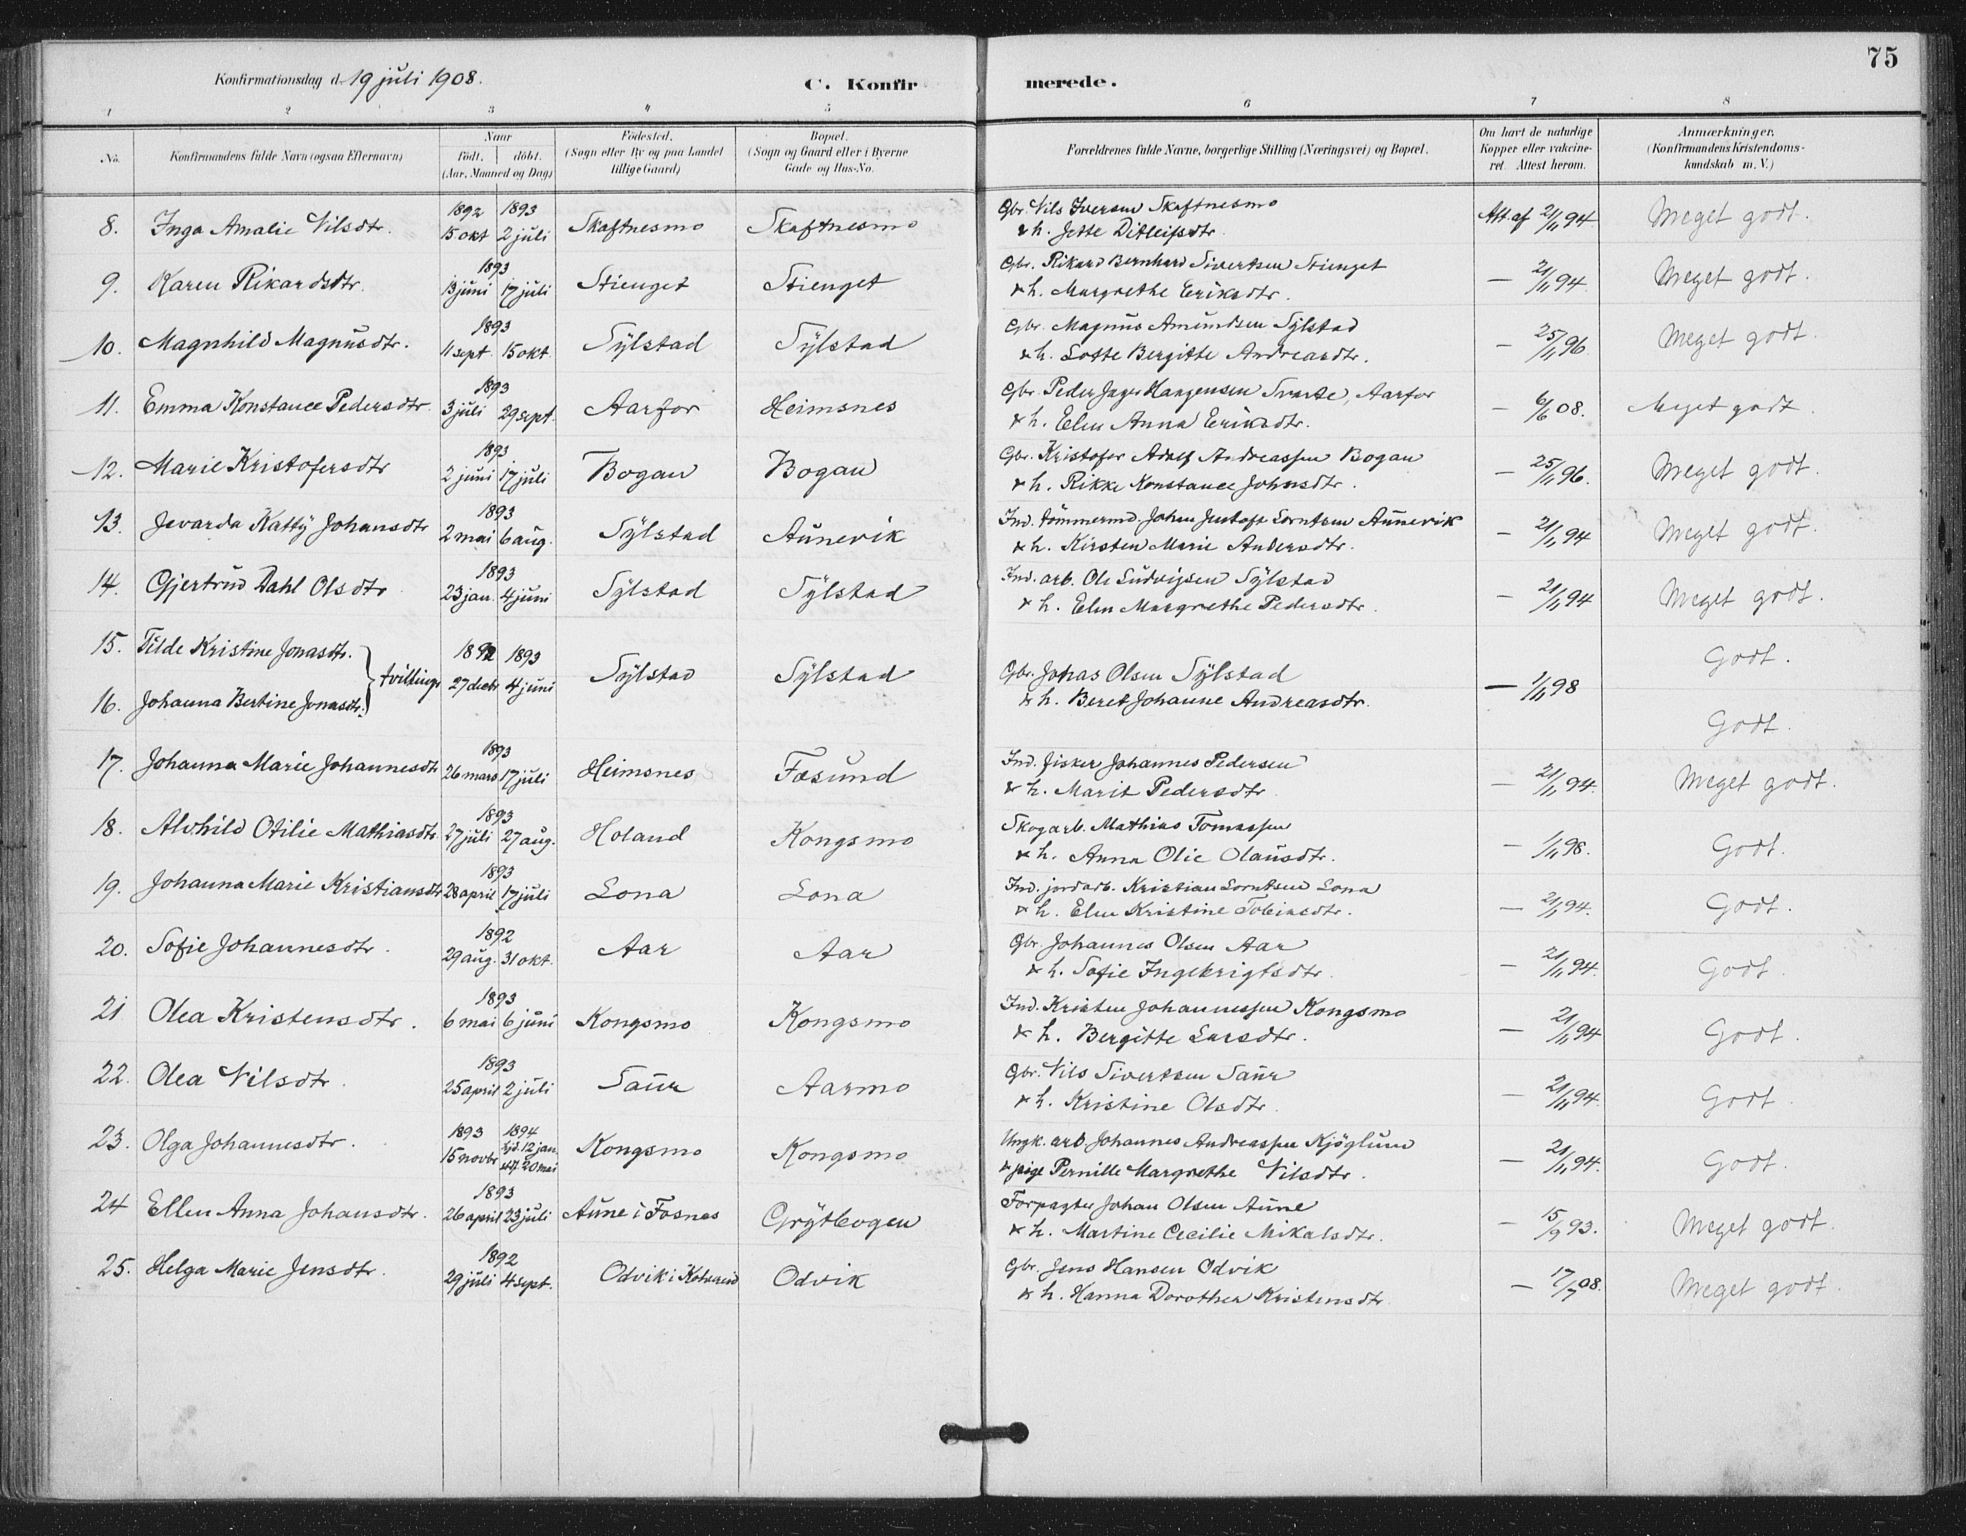 75
Konfirmationsdag d. 19 juli 1908.
C. Konfir merede.
1 2 3 4 5 6 7 8
No. Konfirmandens fulde Navn (ogsaa Efternavn)
Naar
födt. döbt.
(Aar, Maaned og Dag)
Födested.
(Sogn eller By og paa Landet
tillige Gaard)
Bopæl.
(Sogn og Gaard eller i Byerne
Gade og Hus-No.
Forældrenes fulde Navne, borgerlige Stilling (Næringsvei) og Bopæl.
Om havt de naturlige
Kopper eller vakcine-
ret. Attest herom.
Anmærkninger.
(Konfirmandens Kristendoms-
kundskab m. V.)
8. Inga Amalie Nilsdtr. 1892 15 okt 1893 2 juli Skaftnesmo Skaftnesmo Gbr. Nils Iversen Skaftnesmo Att af 21/11 94. Meget godt.
& h. Jette Ditleifsdtr.
9. Karen Rikardsdtr. 1893 13 juni 17 juli Stienget Stienget Gbr. Rikard Bernhard Sivertsen Stienget — 21/11 94. Meget godt.
& h. Margrethe Eriksdtr.
10. Magnhild Magnusdtr. 1893 11 sept. 15 okt. Sylstad Sylstad Gbr. Magnus Amundsen Sylstad — 25/11 96. Meget godt.
& h. Lotte Bergitte Andreasdtr.
11. Emma Konstance Pedersdtr. 1893 3 juli 29 sept. Aarfor Heimsnes Gbr. Peder Hangensen Aarfor — 6/6 08. Meget godt.
& h. Elen Anna Eriksdtr.
12. Marie Kristofersdtr 1893. 2 juni 17 juli Bogan Bogan Gbr. Kristofer Adolf Andreassen Bogan — 25/11 96. Meget godt.
& h. Rikke Konstance Johnsdtr.
13. Jevarda Katty Johansdtr 1893 2 mai 6 aug. Sylstad Aunevik Ind. tömmermd. Johan Lorntsen Aunevik — 21/11 94 Meget godt.
& h. Kirsten Marie Andersdtr.
14. Gjertrud Dahl Olsdtr 1893 23 jan. 4 juni Sylstad Sylstad Ind. arb. Ole Ludvigsen Sylstad — 21/11 94 Meget godt.
& h. Elen Margrethe Pedersdtr.
15. Tilde Kristine Jonasdtr. Godt.
16. Johanna Bertine Jonasdtr. } tvillinge 1892 27 decbr 1893 4 juni Sylstad Sylstad Gbr. Jonas Olsen Sylstad — 1/11 98 Godt.
& h. Beret Johanne Andreasdtr.
17. Johanna Marie Johannesdtr 1893 26 mars 17 juli Heimsnes Fosund Ind. fisker Johannes Pedersen — 21/11 94. Meget godt.
& h. Marit Pedersdtr
18. Alvhild Otilie Mathiasdtr. 1893 27 juli 27 aug. Holand Kongsmo Skogarb. Mathias Tomassen — 1/11 98. Godt.
& h. Anna Olie Olausdtr.
19. Johanna Marie Kristiansdtr 1893 28 april 17 juli Lona Lona Ind. jordarb. Kristian Lorntsen Lona — 21/11 94. Godt.
& h. Elen Kristine Tobiasdtr.
20. Sofie Johannesdtr. 1892 29 aug. 31 okt. Aar Aar Gbr Johannes Olsen Aar — 21/11 94. Godt.
& h. Sofie Ingebrigtsdtr.
21 Olea Kristensdtr. 1893 6 mai 6 juni Kongsmo Kongsmo Ind. Kristen Johannessen Kongsmo — 21/11 94 Godt.
& h. Bergitte Larsdtr.
22. Olea Nilsdtr. 1893 25 april 2 juli Saur Aarmo Gbr. Nils Sivertsen Saur — 21/11 94. Godt.
& h. Kristine Olsdtr.
23. Olga Johannesdtr. 1893 15 novbr 1894 hjd. 12 jan. stf. 20 mai Kongsmo Kongsmo Ungk. arb Johannes Andreassen Kjöglum — 21/11 94. Godt.
& pige Pernille Margrethe Nilsdtr.
24 Ellen Anna Johansdtr. 1893 26 april 23 juli Aune i Fosnes Grytbogen Forpagter Johan Olsen Aune — 15/9 93. Meget godt.
& h. Martine Cecilie Mikalsdtr.
25. Helga Marie Jensdtr. 1892 29 juli 4 sept. Odvik i Kolvereid Odvik Gbr. Jens Hansen Odvik — 17/7 08. Meget godt.
& h. Hanna Dorothea Kristensdtr